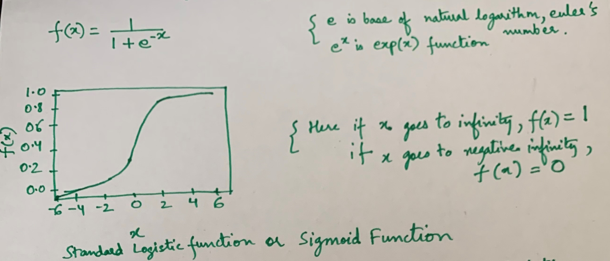 f(x) = 1 / 1 + e^-x
{ e is base of natural logarithm, euler's number.
e^x is exp(x) function
1.0
0.8
06
0.4
0.2
0.0
f(x)
-6 -4 -2 0 2 4 6
x
{ Here if x goes to infinity, f(x) = 1
if x goes to negative infinity,
f(x) = 0
Standard Logistic function or Sigmoid Function